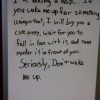 I'm taking a nap... If
you wake me up for something
unimportant, I will buy you a
cute puppy, wait for you to
fall in love with it, and then
murder it in front of you.
Seriously, Don't wake
me up.